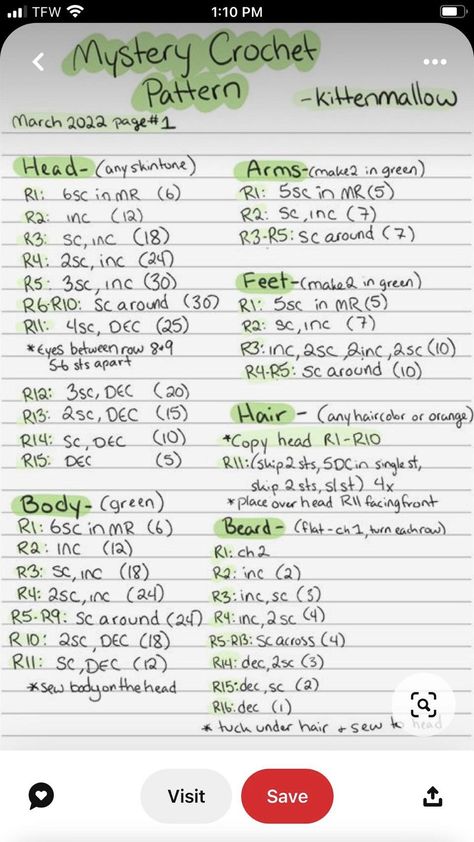 TFW 1:10 PM
Mystery Crochet
Pattern
-kittenmallow
March 2022 page#1
Head- (any skintone)
R1: 6sc in MR (6)
R2: inc (12)
R3: SC, inc (18)
R4: 2sc, inc (24)
R5: 3sc, inc (30)
R6-R10: Sc around (30)
R11: 4sc, DEC (25)
*Eyes between row 8+9
5-6 sts apart
R12: 3sc, DEC (20)
R13: 2sc, DEC (15)
R14: SC, DEC (10)
R15: DEC (5)
Body- (green)
R1: 6sc in MR (6)
R2: INC (12)
R3: SC, INC (18)
R4: 2sc, inc (24)
R5-R9: Sc around (24)
R10: 2sc, DEC (18)
R11: SC, DEC (12)
*sew body on the head
Arms-(make2 in green)
R1: 5sc in MR(5)
R2: SC, inc (7)
R3-R5: Sc around (7)
Feet-(make2 in green)
R1: 5sc in MR(5)
R2: SC, inc (7)
R3: inc, 2sc, 2inc, 2sc (10)
R4-R5: Sc around (10)
Hair - (any haircolor or orange)
*Copy head R1-R10
R11: (skip 2 sts, 5DC in single st,
skip 2 sts, slst) 4x
*place over head R11 facing front
Beard- (flat-ch1, turn each row)
R1: ch2
R2: inc (2)
R3: inc, sc (3)
R4: inc, 2sc (4)
R5-R13: Sc across (4)
R14: dec, 2sc (3)
R15: dec, sc (2)
R16: dec (1)
* tuck under hair + sew to head
Visit
Save